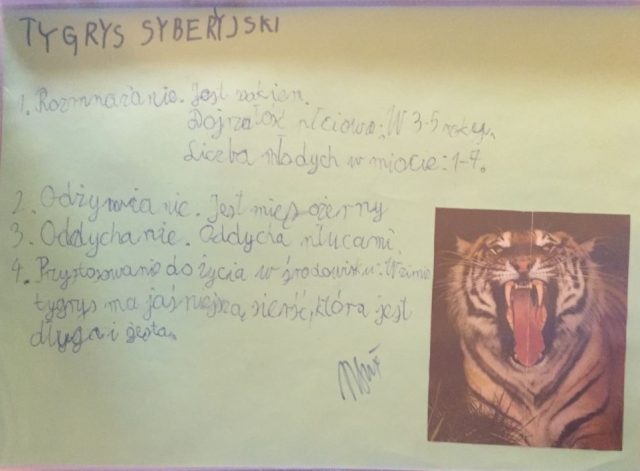 TYGRYS SYBERYJSKI
1. Rozmnażanie. Jest ssakiem.
Dojrzałość płciowa: W 3-5 roku.
Liczba młodych w miocie: 1-7.
2. Odżywianie. Jest mięsożerny
3. Oddychanie. Oddycha płucami.
4. Przystosowanie do życia w środowisku: W zimie
tygrys ma jaśniejszą sierść, która jest
długa i gęsta.